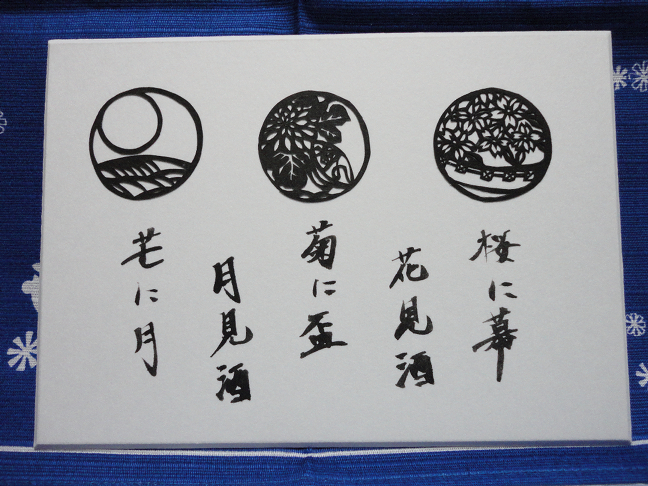 桜に幕
花見酒
菊に盃
月見酒
芒に月